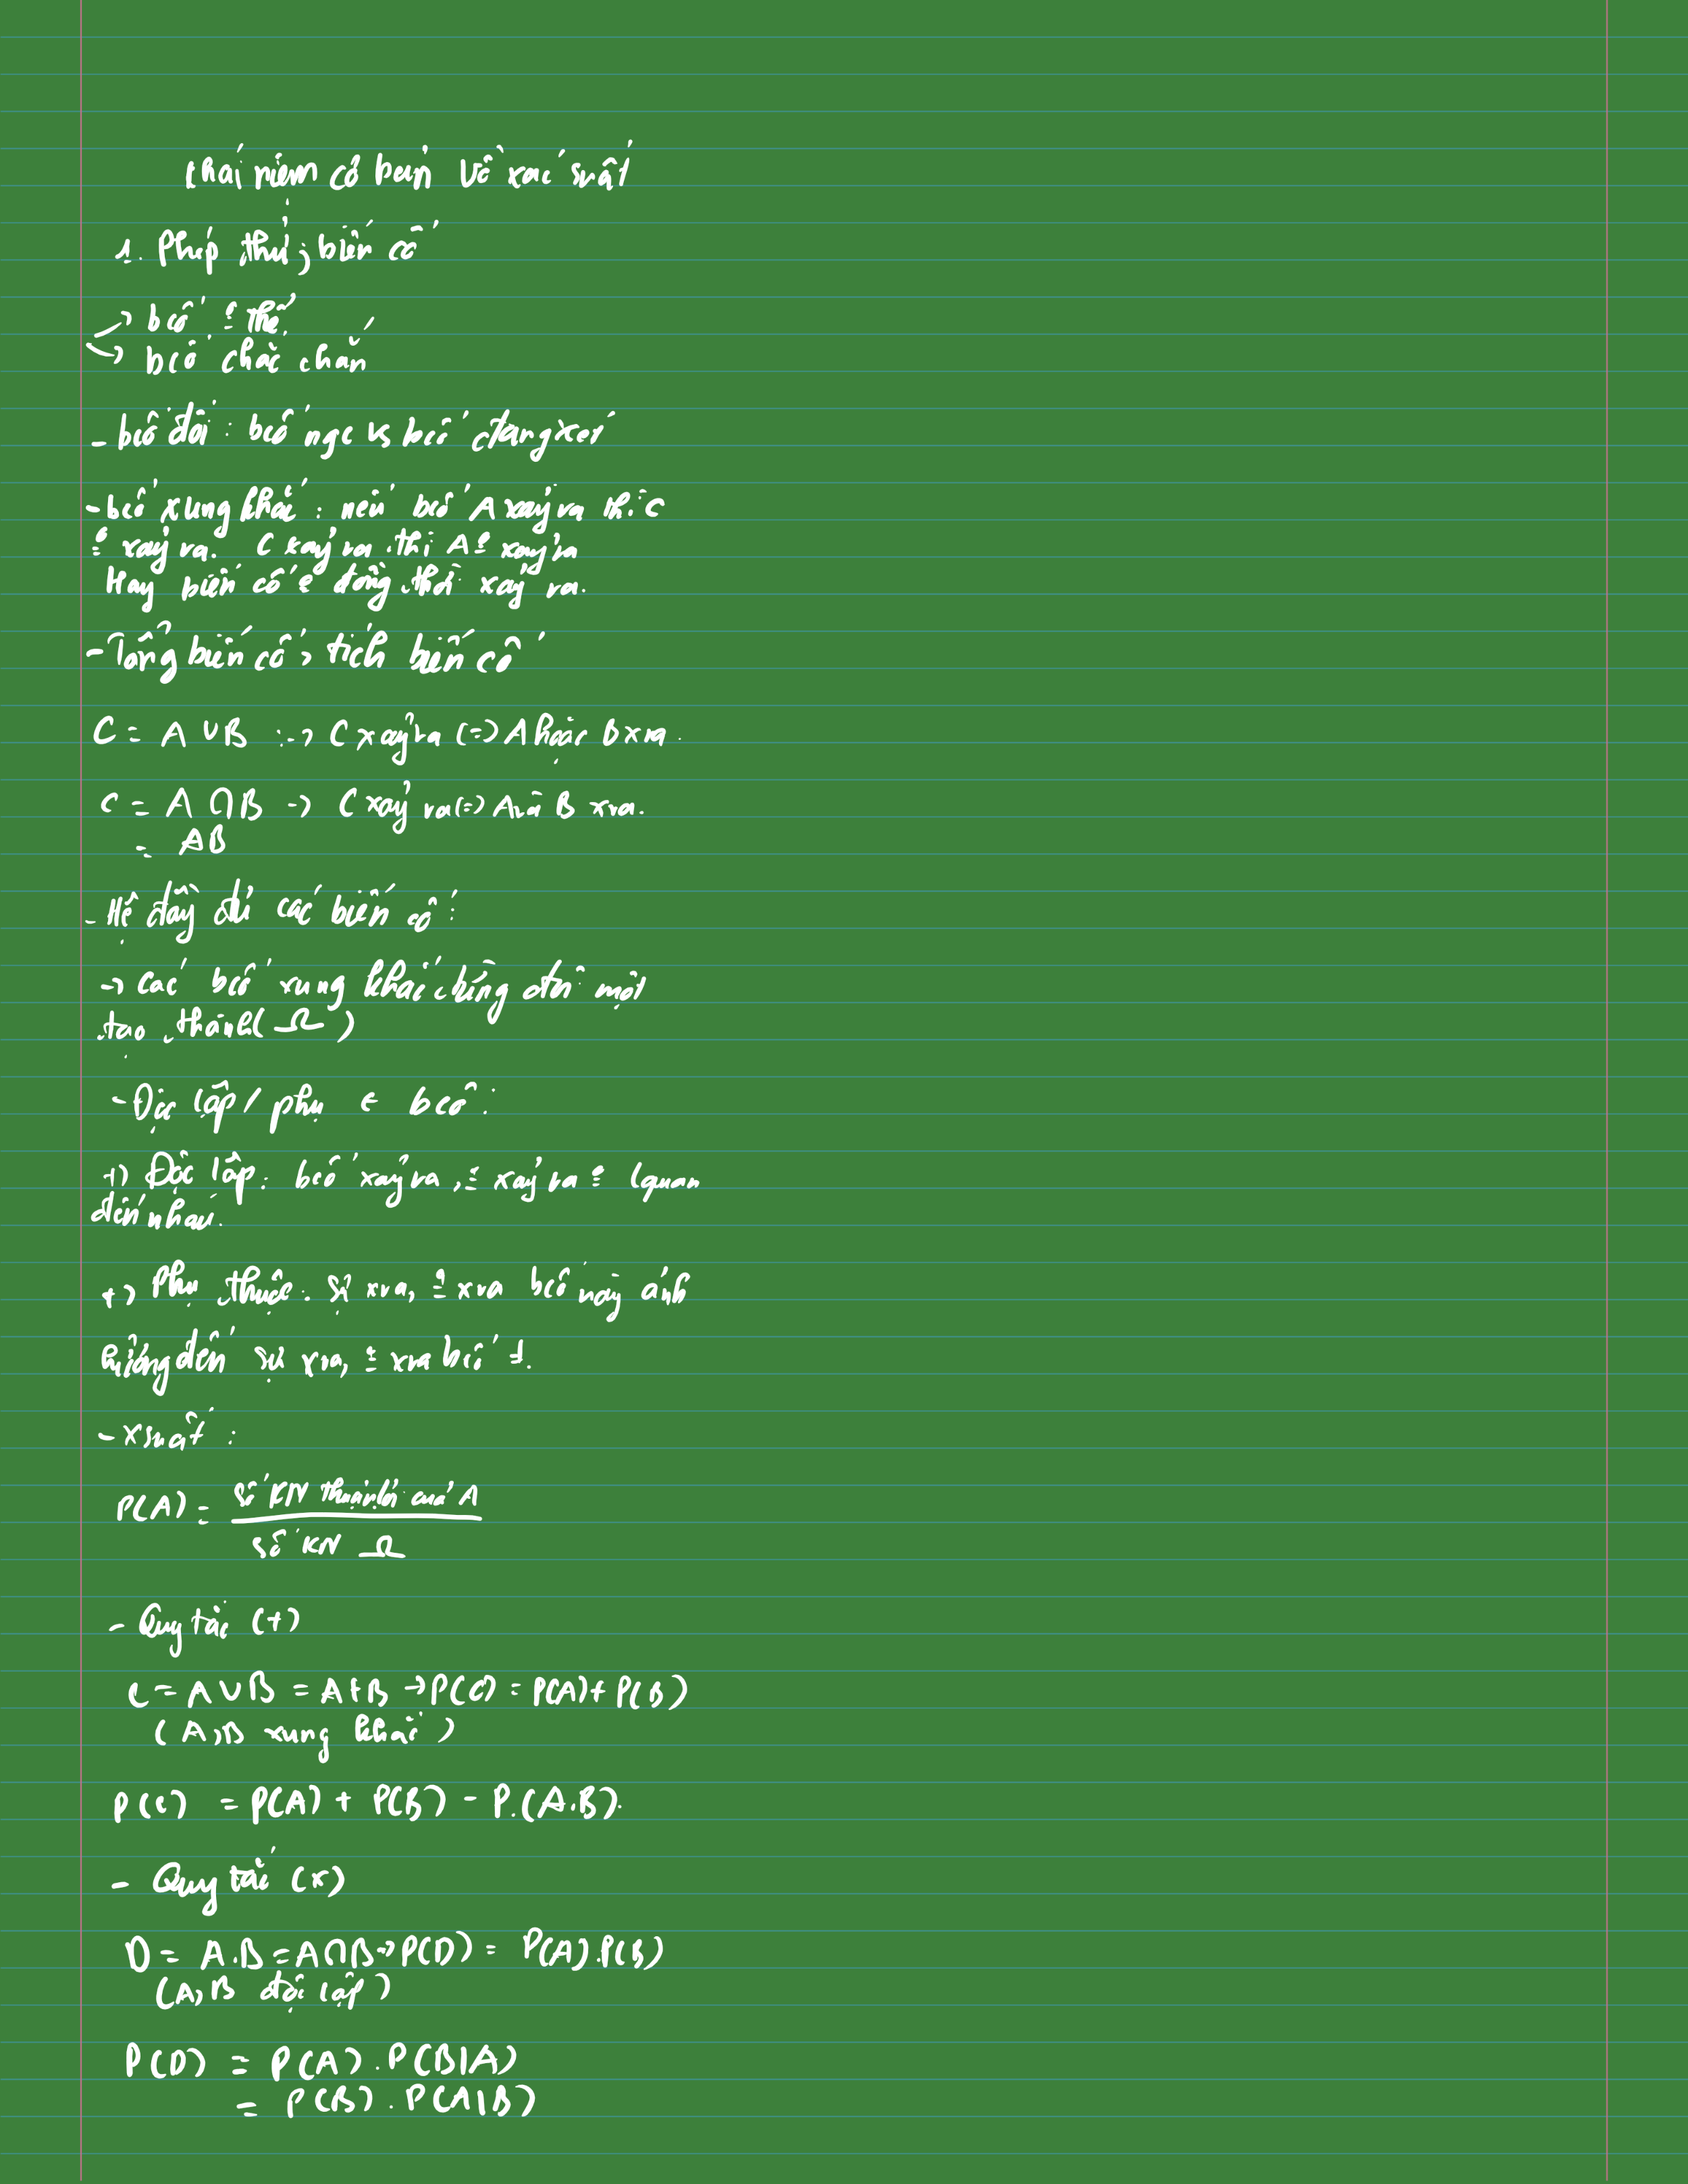 Khái niệm cơ bản về xác suất
1. Phép thử, biến cố
→ bcố ⋮ thể
→ bcố chắc chắn
- bcố đối : bcố ngc vs bcố đang xét
- bcố xung khắc : nếu bcố A xảy ra thì C
⋮ xảy ra. C xảy ra thì A ⋮ xảy ra
Hay biến cố ⋮ đồng thời xảy ra.
- Tổng biến cố, tích biến cố
C = A ∪ B :→ C xảy ra (=) A hoặc B xra.
C = A ∩ B → C xảy ra (=) A và B xra.
= AB
- Hệ đầy đủ các biến cố :
→ Các bcố xung khắc từng đôi một
tạo thành (Ω)
- Độc lập / phụ ∈ bcố :
+) Độc lập : bcố xảy ra, ⋮ xảy ra ⋮ lquan
đến nhau.
+) Phụ thuộc : sự xra, ⋮ xra bcố này ảnh
hưởng đến sự xra, ⋮ xra bcố ≠.
- xsuất :
P(A) = số KN thuận lợi của A
số KN Ω
- Quy tắc (+)
C = A ∪ B = A + B → P(C) = P(A) + P(B)
(A, B xung khắc)
P(C) = P(A) + P(B) - P.(A.B).
- Quy tắc (x)
D = A.B = A ∩ B → P(D) = P(A).P(B)
(A, B độc lập)
P(D) = P(A) . P(B|A)
= P(B) . P(A|B)